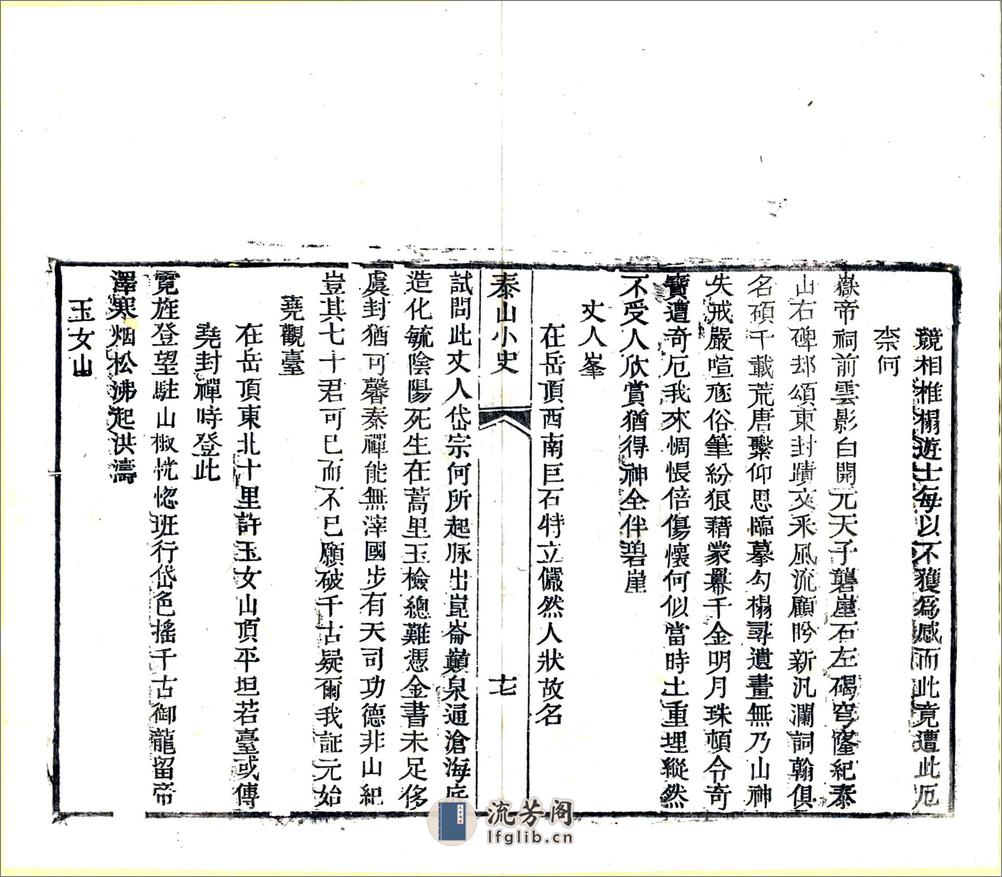 競相椎榻遊士每以不獲為感而此竟遭此厄
柰何
嶽帝祠前雲影白開元天子礱崖石左碣穹窿紀泰
山右碑却頌東封蹟文釆風流顧盼新汎瀾詞翰俱
名碩千載荒唐繫仰思臨摹勾榻尋遺畫無乃山神
失戒嚴喧豗俗筆紛狼藉蒙羃千金明月珠頓令奇
寶遭奇厄我來惆悵倍傷懷何似當時土重埋縱然
不受人欣賞猶得神全伴碧崖
丈人峯
在岳頂西南巨石特立儼然人狀故名
泰山小史
十七
試問此丈人岱宗何所起脉出崑崙巔泉通滄海底
造化毓陰陽死生在蒿里玉檢總難憑金書未足侈
虞封猶可馨秦禪能無滓國步有天司功德非山紀
豈其七十君可已而不已願破千古疑爾我証元始
堯觀臺
在岳頂東北十里許玉女山頂平坦若臺或傳
堯封禪時登此
霓旌登望駐山椒恍惚班行岱色搖千古御龍留帝
澤寒烟松沸起洪濤
玉女山
流芳阁
lfglib.cn